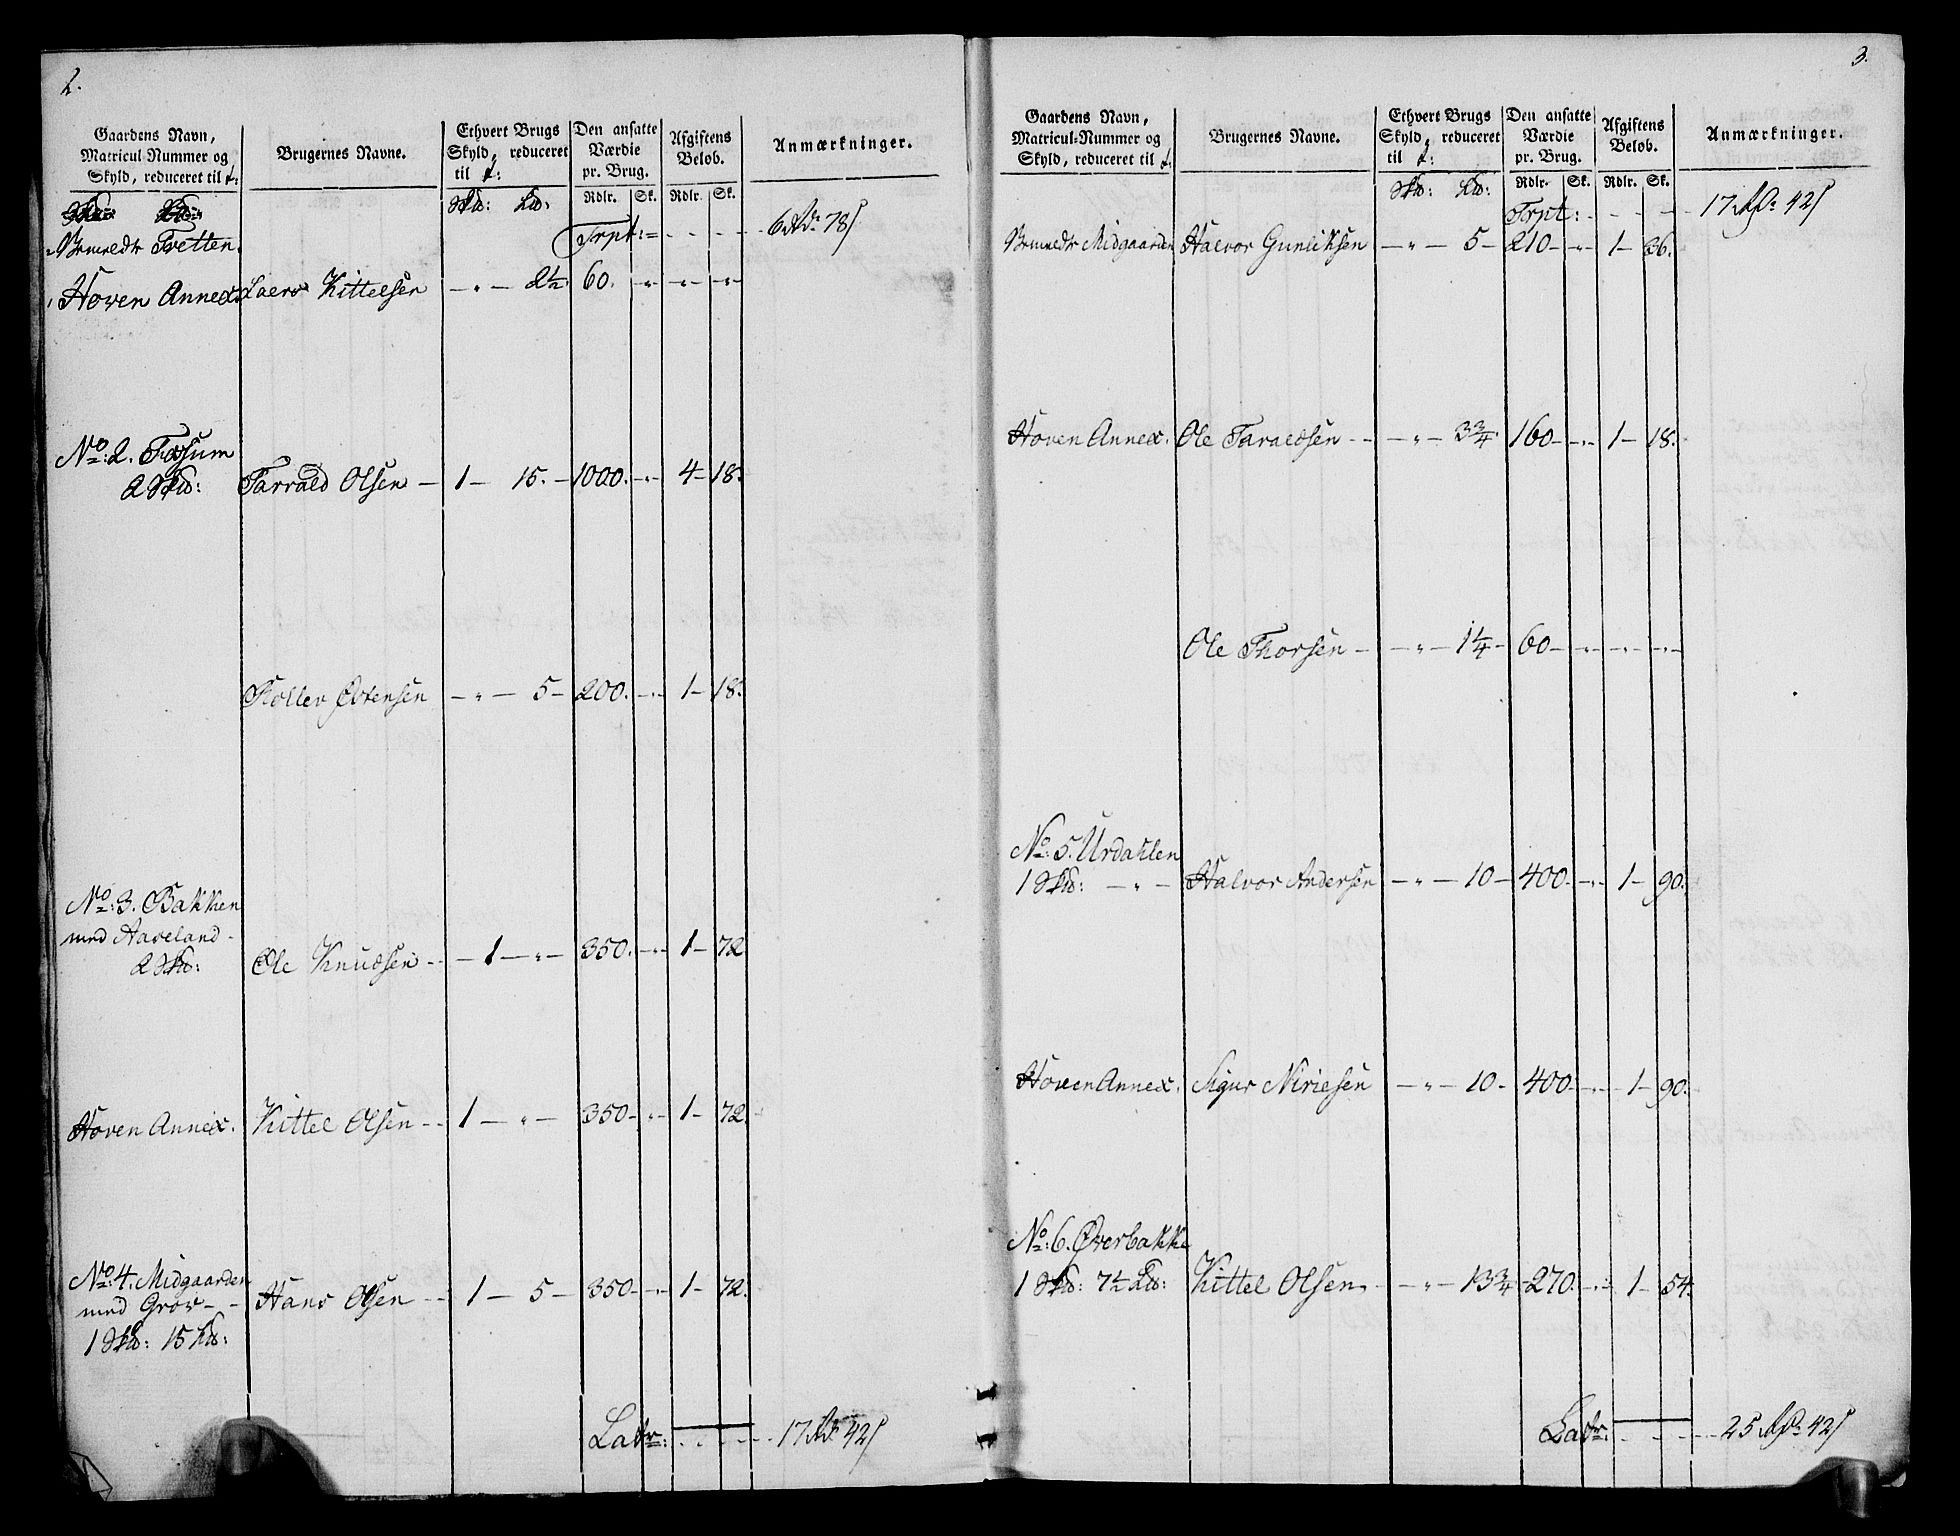 2.
Gaardens Navn,
Matricul-Nummer og
Skyld, reduceret til
Brugernes Navne.
Ethvert Brugs
Skyld, reduceret
til
Den ansatte
Værdie
pr. Brug.
Afgiftens
Beløb.
Anmærkninger.
Rdlr. Sk. Rdlr. Sk.
Trpt: 6 Rd 78 s
Tvetten
Hoven Annex. Laers Kittelsen - " - 2½ 60. - " - " - "
No: 2. Fossum
2 Skd: Tarrald Olsen - 1 - 15. - 1000. - " - 4 - 18.
Tollev Østensen - " - 5 - 200. - " - 1 - 18.
No: 3. Bakken
med Aaseland -
2 Skd: Ole Knudsen - - 1 - " - 350. - " - 1 - 72
Hoven Annex. Kittel Olsen - 1 - " - 350 - " - 1 - 72.
No: 4. Midgaarden
med Grov - -
1 Skd: 15 Ld: Hans Olsen - 1 - 5 - 350 - " - 1 - 72.
Latr: 17 Rd 42 s
3.
Gaardens Navn,
Matricul-Nummer og
Skyld, reduceret til
Brugernes Navne.
Ethvert Brugs
Skyld, reduceret
til
Den ansatte
Værdie
pr. Brug.
Afgiftens
Beløb.
Anmærkninger.
Skd: Ld: Rdlr. Sk. Rdlr. Sk.
Trpt: 17 Rd 42 s
Midgaarden Halvor Gunliksen - " - 5 - 210 - " - 1 - 36.
Hoven Annex. Ole Taraldsen - - " - 3¾ 160 - " - 1 - 18.
Ole Thorsen - - " - 1¼ - 60 - " - " - "
No: 5. Urdahlen
1 Skd: - " - Halvor Andersen - " - 10 - 400 - " - 1 - 90.
Hoven Annex. Sigur Nirisen - " - 10 - 400 - " - 1 - 90.
No: 6. Øverbakke
1 Skd: 7½ Ld: Kittel Olsen - - " - 13¾ 270. - " - 1 - 54.
Latr: 25 Rd 42 s